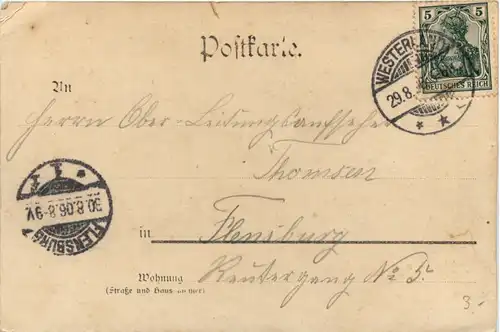 Postkarte.
5
DEUTSCHES REICH
WESTERLAND
29.8.
An
Herrn Ober-Leitungsaufseher
Thomsen
30.8.06.8-9V.
FLENSBURG
in Flensburg
Wohnung Reutergang No 5.
(Straße und Hausnummer)
3.-